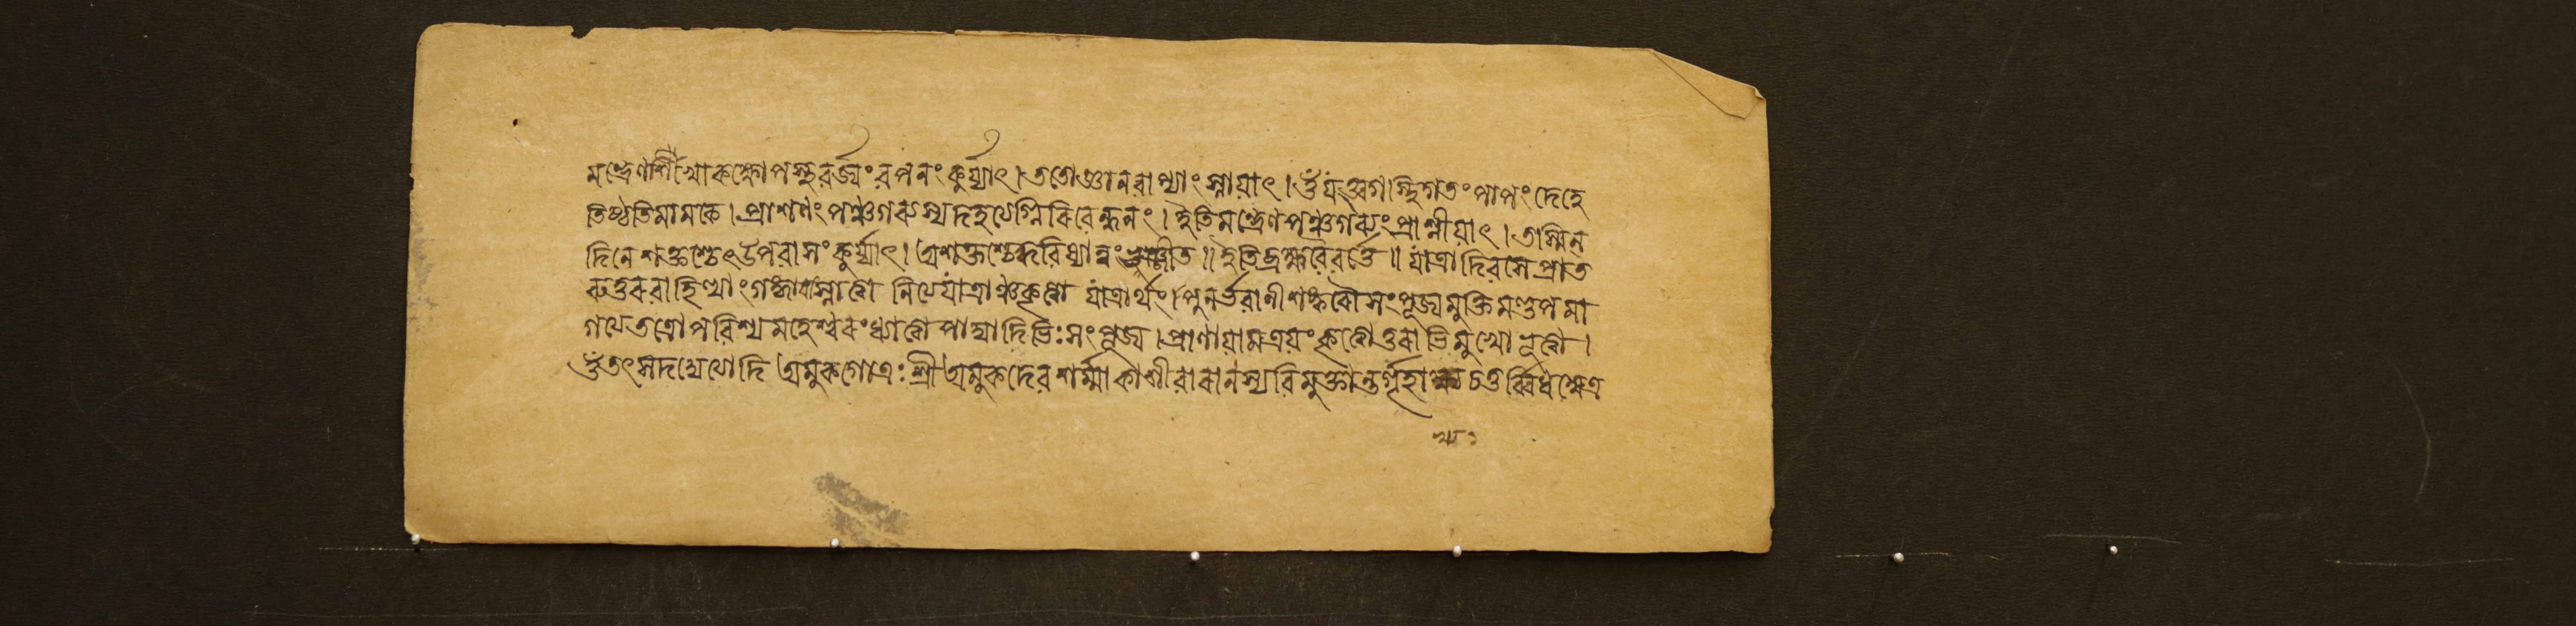 মন্ত্রেণ শিখাকক্ষোপস্থবর্জ্যং বপনং কুর্য্যাৎ। ততো জ্ঞানবাপ্যাং স্নায়াৎ। ওঁ যৎ ত্বগস্থিগতং পাপং দেহে
তিষ্ঠতি মামকে। প্রাশনং পঞ্চগব্যস্য দহত্যগ্নিরিবেন্ধনং। ইতি মন্ত্রেণ পঞ্চগব্যং প্রাশ্নীয়াৎ। তস্মিন
দিনে শক্তশ্চেৎ উপবাসং কুর্য্যাৎ। অশক্তশ্চেদ্ধবিষ্যান্নং ভুঞ্জীত॥ ইতি ব্রহ্মবৈবর্ত্তে॥ যাত্রাদিবসে প্রাত
গঙ্গায়াং স্নাত্বা নিত্যযাত্রাঞ্চ কৃত্বা যাত্রার্থং। পুনর্ভবানীশঙ্করৌ সংপূজ্য মুক্তিমণ্ডপমা
গত্য তত্রোপবিশ্য মহেশ্বরং ধ্যাত্বা পাদ্যাদিভিঃ সংপূজ্য। প্রাণায়ামত্রয়ং কৃত্বা উত্তরাভিমুখো ভূত্বা।
ওঁ তৎসদদ্যেত্যাদি অমুকগোত্রঃ শ্রী অমুকদেবশর্ম্মা কাশীবারাণস্যবিমুক্তান্তর্গৃহাখ্য চতুর্ব্বিধক্ষেত্র